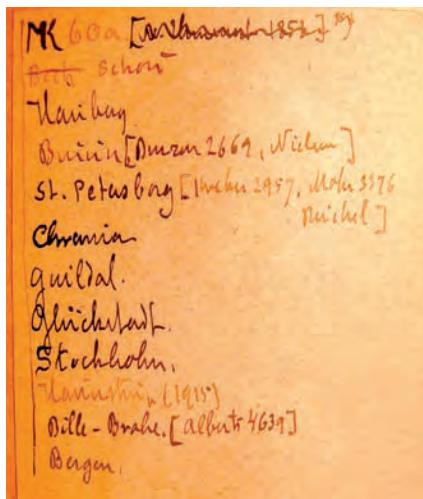 MK 60a [
Schou
Hauberg
Bruun [Bruun 2669, Nielsen]
St. Petersborg [2957, Mohr 3376
Reichel]
Chrania
Guildal.
Glückstadt.
Stockholm.
(1915)
Bille-Brahe. [Alberts 4639]
Bergen.